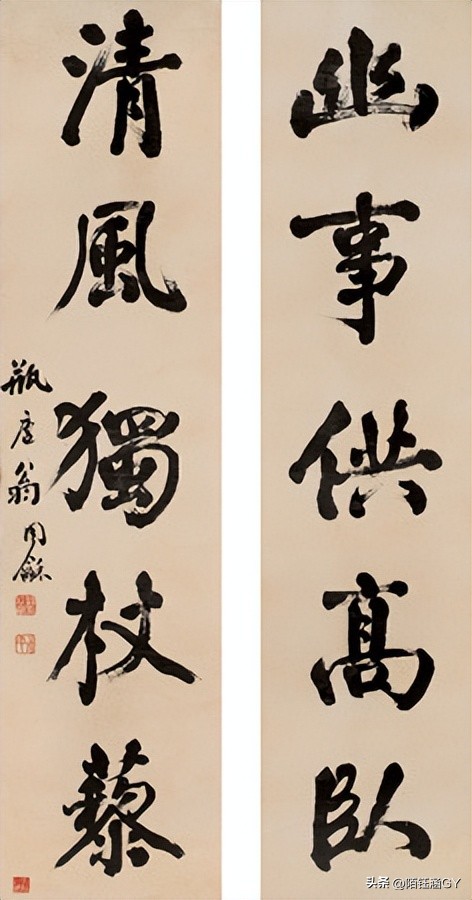 幽事供高臥
清風獨杖藜
瓶廬翁同龢
头条 @陌钰涵GY